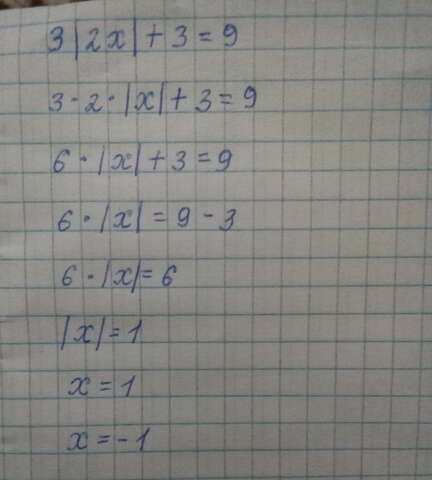 3|2x| + 3 = 9
3 · 2 · |x| + 3 = 9
6 · |x| + 3 = 9
6 · |x| = 9 - 3
6 · |x| = 6
|x| = 1
x = 1
x = -1